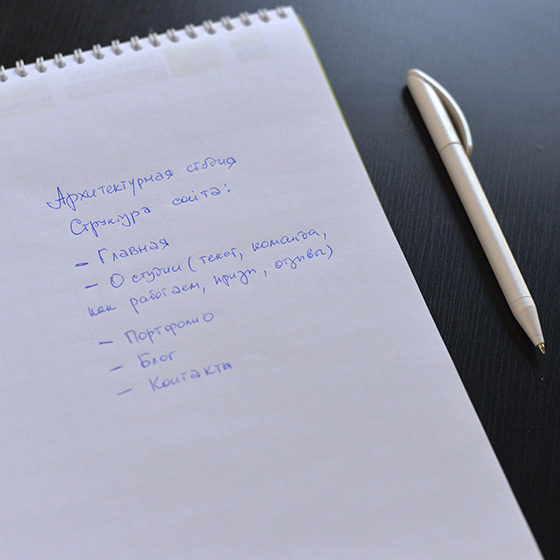 Архитектурная студия
Структура сайта:
- Главная
- О студии (текст, команда,
как работаем, призы, отзывы)
- Портфолио
- Блог
- Контакта